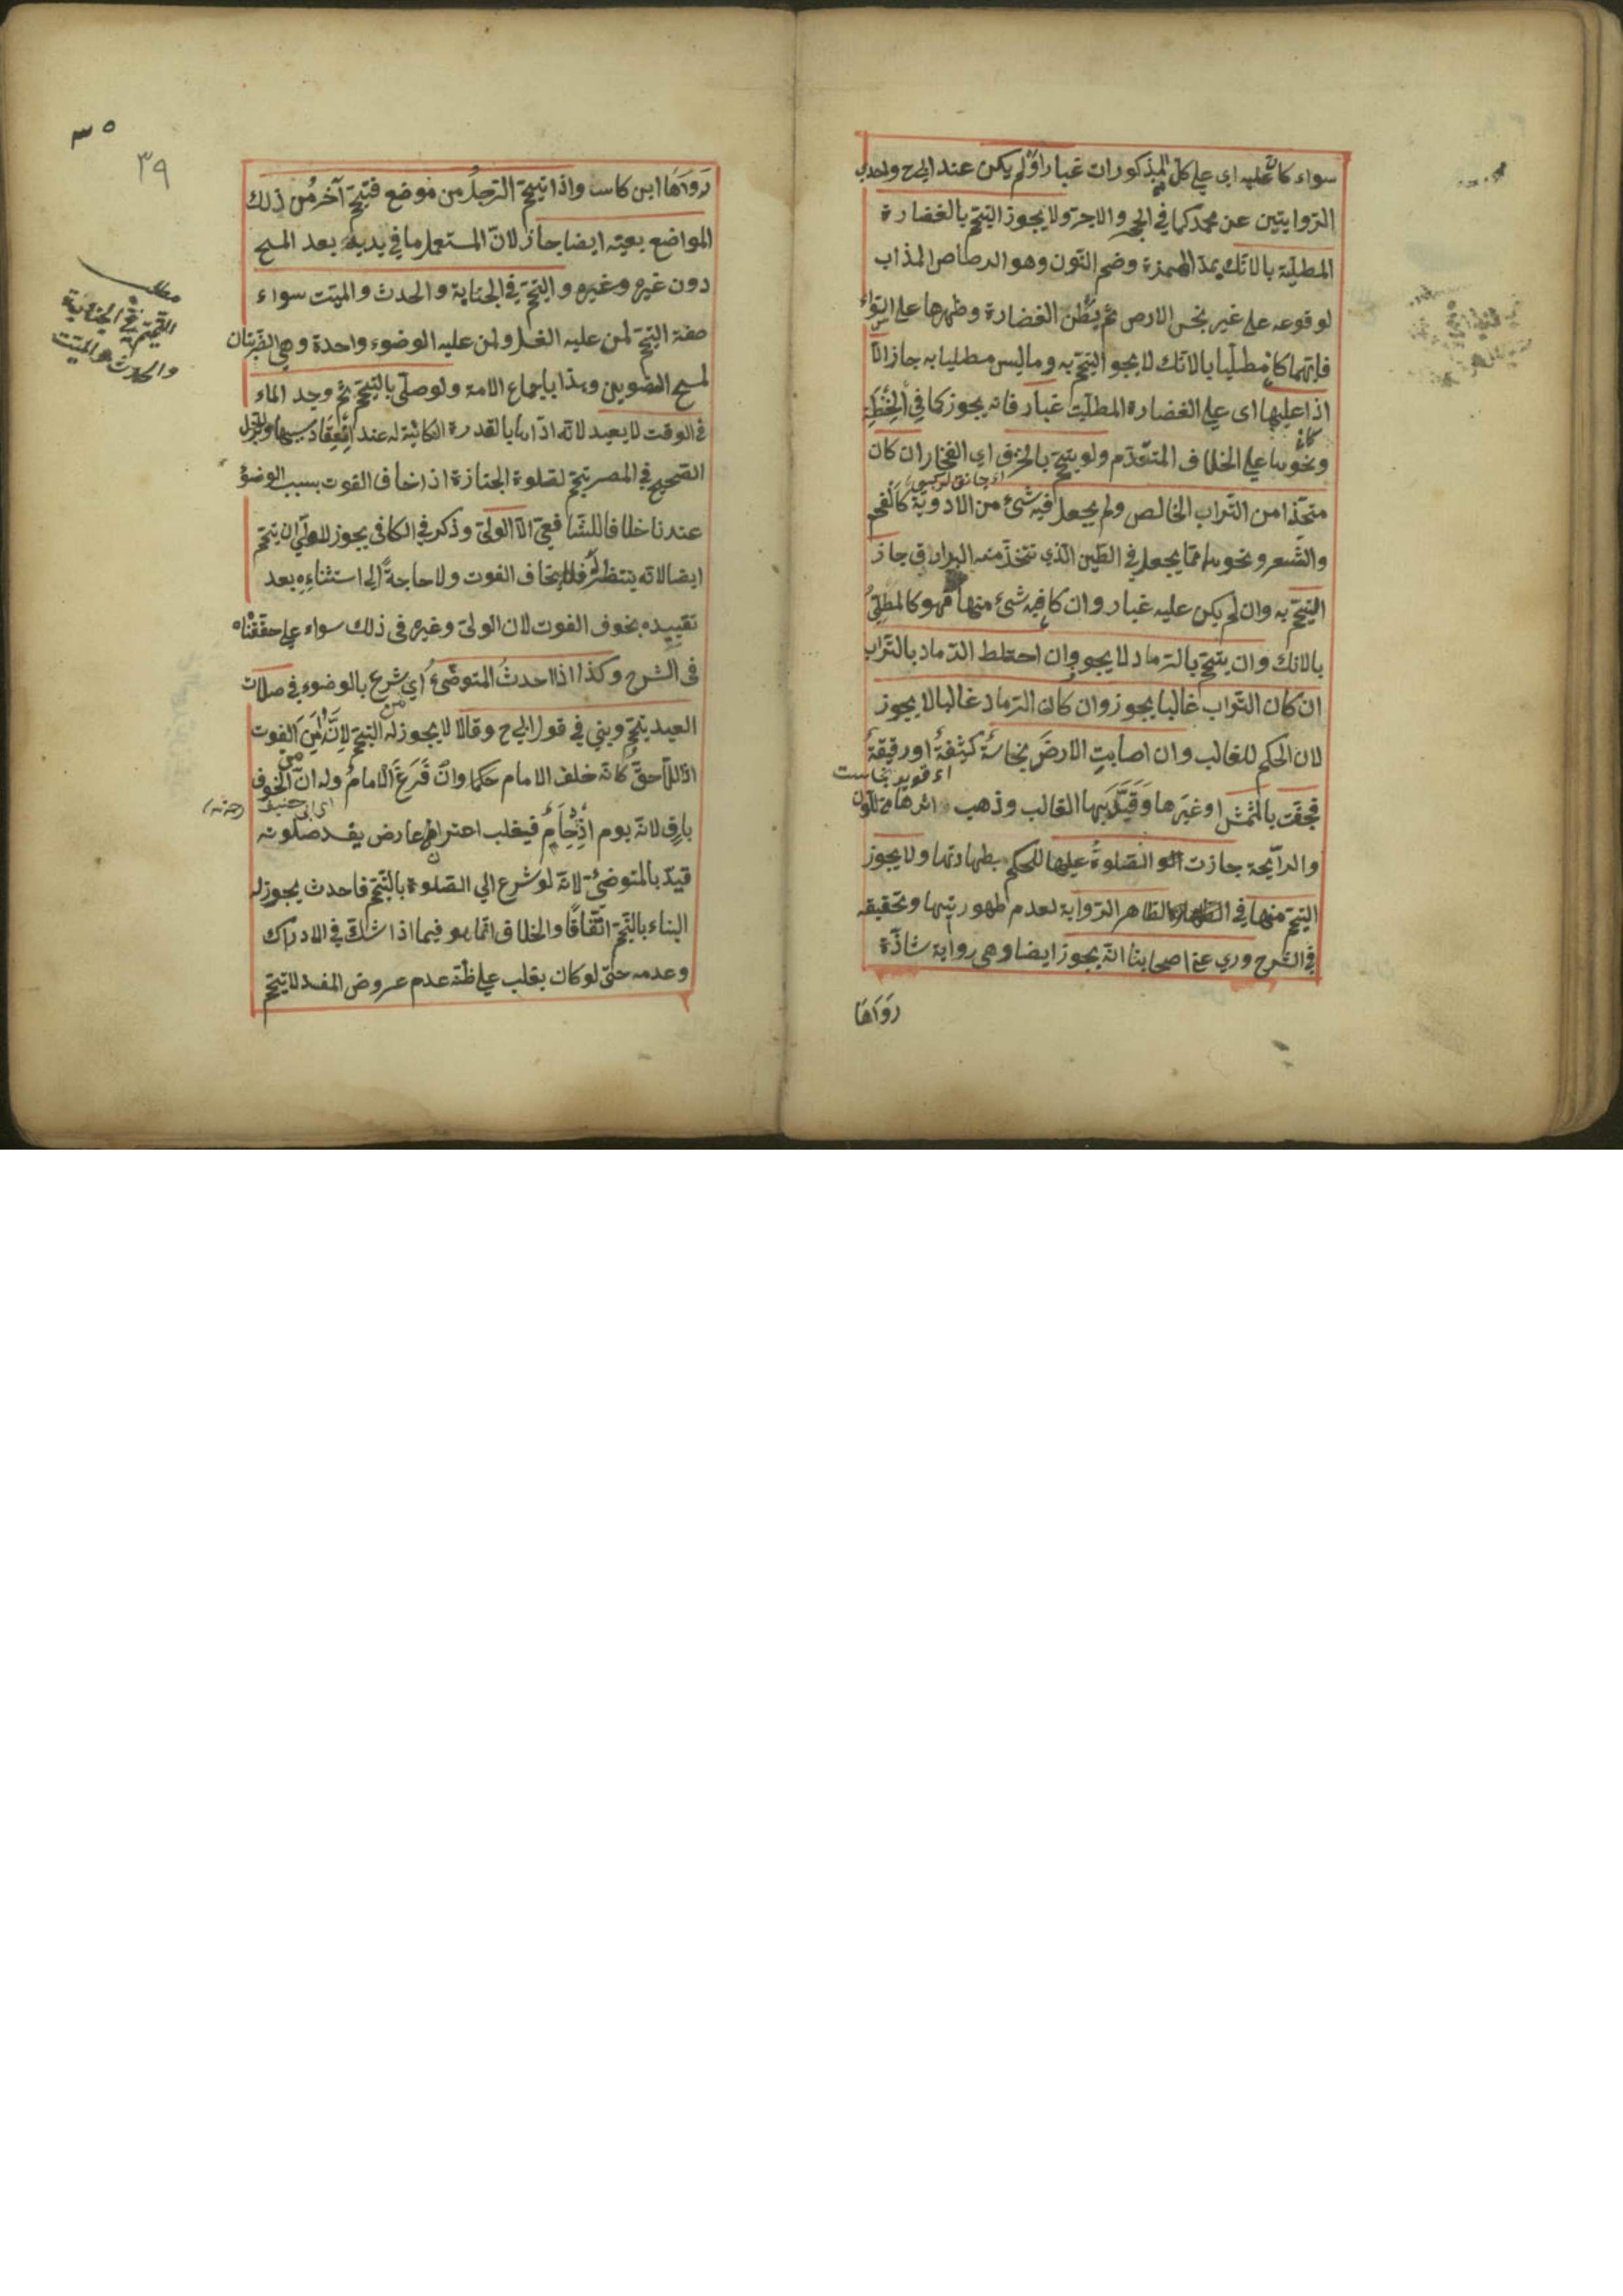 سواء كان عليه اي على كل المذكورات غبار او لم يكن عند ابي ح واحدي
الروايتين عن محمد كما في الحجر والاجر ولا يجوز التيمم بالغضارة
المطليّة بالآنك بمدّ الهمزة وضم النّون وهو الرصاص المذاب
لوقوعه على غير جنس الارض ثم بطن الغضارة وظهرها على السواء
فايّهما كان مطليّا بالآنك لا يجوز التيمم به وما ليس مطليا به جاز الّا
اذا عليها اى على الغضارة المطليّة غبار فانه يجوز كما في الحنطة
كان
ونحوها على الخلاف المتقدّم ولو تيمم بالخزف اي الفخّار ان كان
متخذا من التّراب الخالص ولم يجعل فيه شئ من الادوية كالفحم
والشّعر ونحوهما ممّا يجعل في الطّين الّذي تتخذ منه جاز
التيمّم به وان لم يكن عليه غبار وان كان فيه شئ منها فهو كالمطلىّ
بالانك وان تيمم بالرّماد لا يجوز وان اختلط الرّماد بالتّراب
ان كان التّراب غالبا يجوز وان كان الرّماد غالبا لا يجوز
لان الحكم للغالب وان اصابت الارضَ نجاسةٌ كثيفةٌ او رقيقةٌ
فجفّت بالشّمس او غيرها وقيّد بها الغالب وذهب اثرها من اللّون
والرّايحة جازت الصّلوةُ عليها للحكم بطهارتها ولا يجوز
التيمّم منها في الظاهر الرّواية لعدم طهوريّتها وتحقيقه
في الشّرح وروي عن اصحابنا انّه يجوز ايضا وهي رواية شاذّة
رَوَاهَا
٣٥
٣٩
رَوَاهَا ابن كاس واذا تيمّم الرّجلُ من موضع فتيمّم آخرُ من ذلك
المواضع بعينه ايضا جاز لانّ المستعمل ما في يديه بعد المسح
دون غيره وغيره والتيمّم في الجنابة والحدث والميّت سواء
مطلب
التيمّم في الجنابة
والحدث والميّت
صفة التيمّم لمن عليه الغسل ولمن عليه الوضوء واحدة وهي الضّربتان
لمسح العضوين وهذا باجماع الامة ولو صلّى بالتيمّم ثمّ وجد الماء
في الوقت لا يعيد لانّه اداها بالقدرة الكائنة له عند انعقاد سببها
الصّحيح في المصر تيمّم لصلوة الجنازة اذا خاف الفوت بسبب الوضوء
عندنا خلافا للشّافعيّ الّا الوليّ وذكر في الكافى يجوز للوليّ ان يتيمّم
ايضا لانّه ينتظر فلا يخاف الفوت ولا حاجةً الى استثناءِه بعد
تقييده بخوف الفوت لان الوليّ وغيره في ذلك سواء على حقّقناه
فى الشرح وكذا اذا احدثَ المتوضّئُ اي شرع بالوضوء في صلات
العيد يتيمّم ويبني في قول ابي ح وقالا لا يجوز له التيمّم لانّه أمِنَ من الفوت
اذ اللّاحق كانّه خلف الامام حكما وان فَرَغَ الامامُ وله انّ الخوف
اي ابي حنيفة
باق لانّه يوم ازدحام فيغلب اعتراض عارض يفسد صلوته
قيّد بالمتوضئ لانّه لو شرع الى الصّلوة بالتّيمّم فاحدث يجوز له
البناء بالتّيمّم اتّفاقًا والخلاف انّما هو فيما اذا شكّ في الادراك
وعدمه حتّى لو كان يغلب على ظنّه عدم عروض المفسد لا يتيمّم